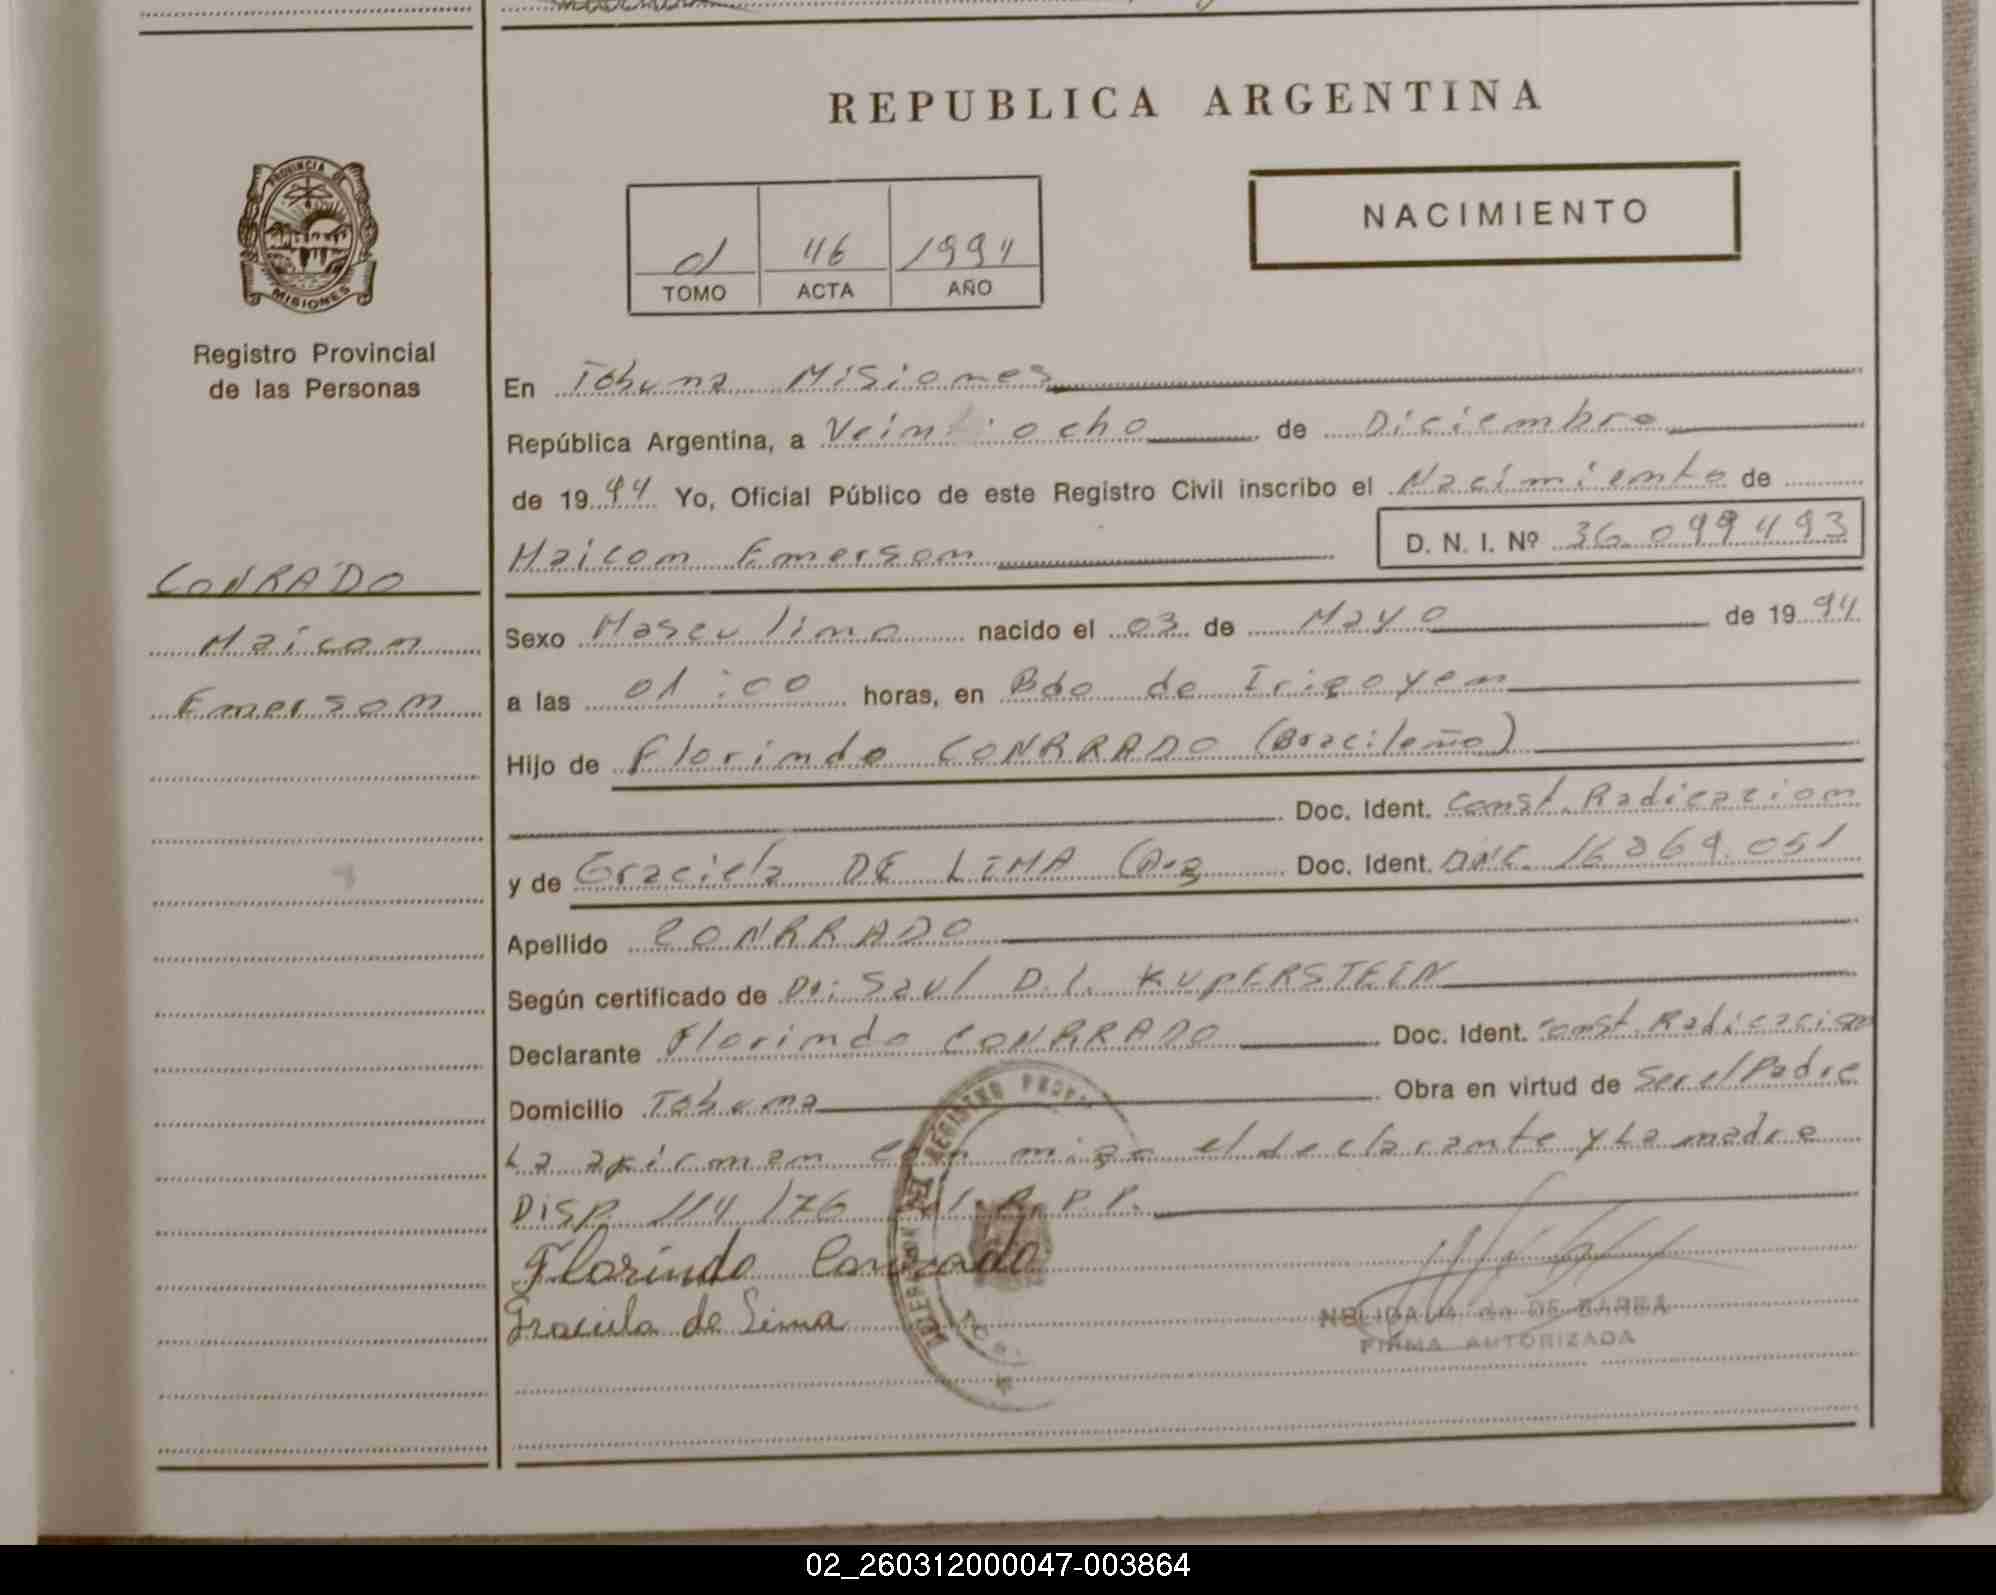 REPUBLICA ARGENTINA
PROVINCIA DE
MISIONES
Registro Provincial
de las Personas
NACIMIENTO
01 116 1994
TOMO ACTA AÑO
En Tobuna Misiones
República Argentina, a Veintiocho de Diciembre
de 1994 Yo, Oficial Público de este Registro Civil inscribo el Nacimiento de
Maicon Emerson D. N. I. Nº 36.099493
CONRADO
Maicon
Emerson
Sexo Masculino nacido el 03 de Mayo de 1994
a las 01:00 horas, en Bdo de Irigoyen
Hijo de Florindo CONRRADO (Bracileño)
Doc. Ident. Const. Radicacion
y de Graciela DE LIMA Doc. Ident. DNI. 16269.051
Apellido CONRRADO
Según certificado de Dr: Saul D.L. KUpERSTEIN
Declarante Florindo CONRRADO Doc. Ident. Const. Radicacion
Domicilio Tobuna Obra en virtud de Ser el Padre
La afirman con migo el declarante y La madre
DISP. 114/76 R.P.P.
Florindo Conrado
Graciela de Lima
DE
FIRMA AUTORIZADA
REGISTRO
02_260312000047-003864